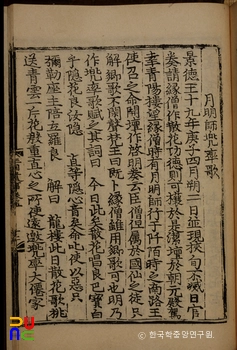 月明師兜率歌
景德王十九年庚子四月朔二日並現挾旬不滅日官
奏請緣僧作散花功德則可禳於是潔壇於朝元殿駕
幸青陽樓望緣僧時有月明師行于阡陌時之南路王
使召之命開壇作啓明奏云臣僧但属於國仙之徒只
解鄉歌不閑聲梵王曰既卜緣僧雖用鄉歌可也明乃
作兜率歌賦之其詞曰 今日此矣散花唱良巴寶白
乎隱花良汝隱 直等隱心音矣命叱使以惡只
彌勒座主陪立羅良 解曰 龍樓此日散花歌挑
送青雲一片花殷重直心之所使遠邀兜率大僊家
ⓒ 한국학중앙연구원